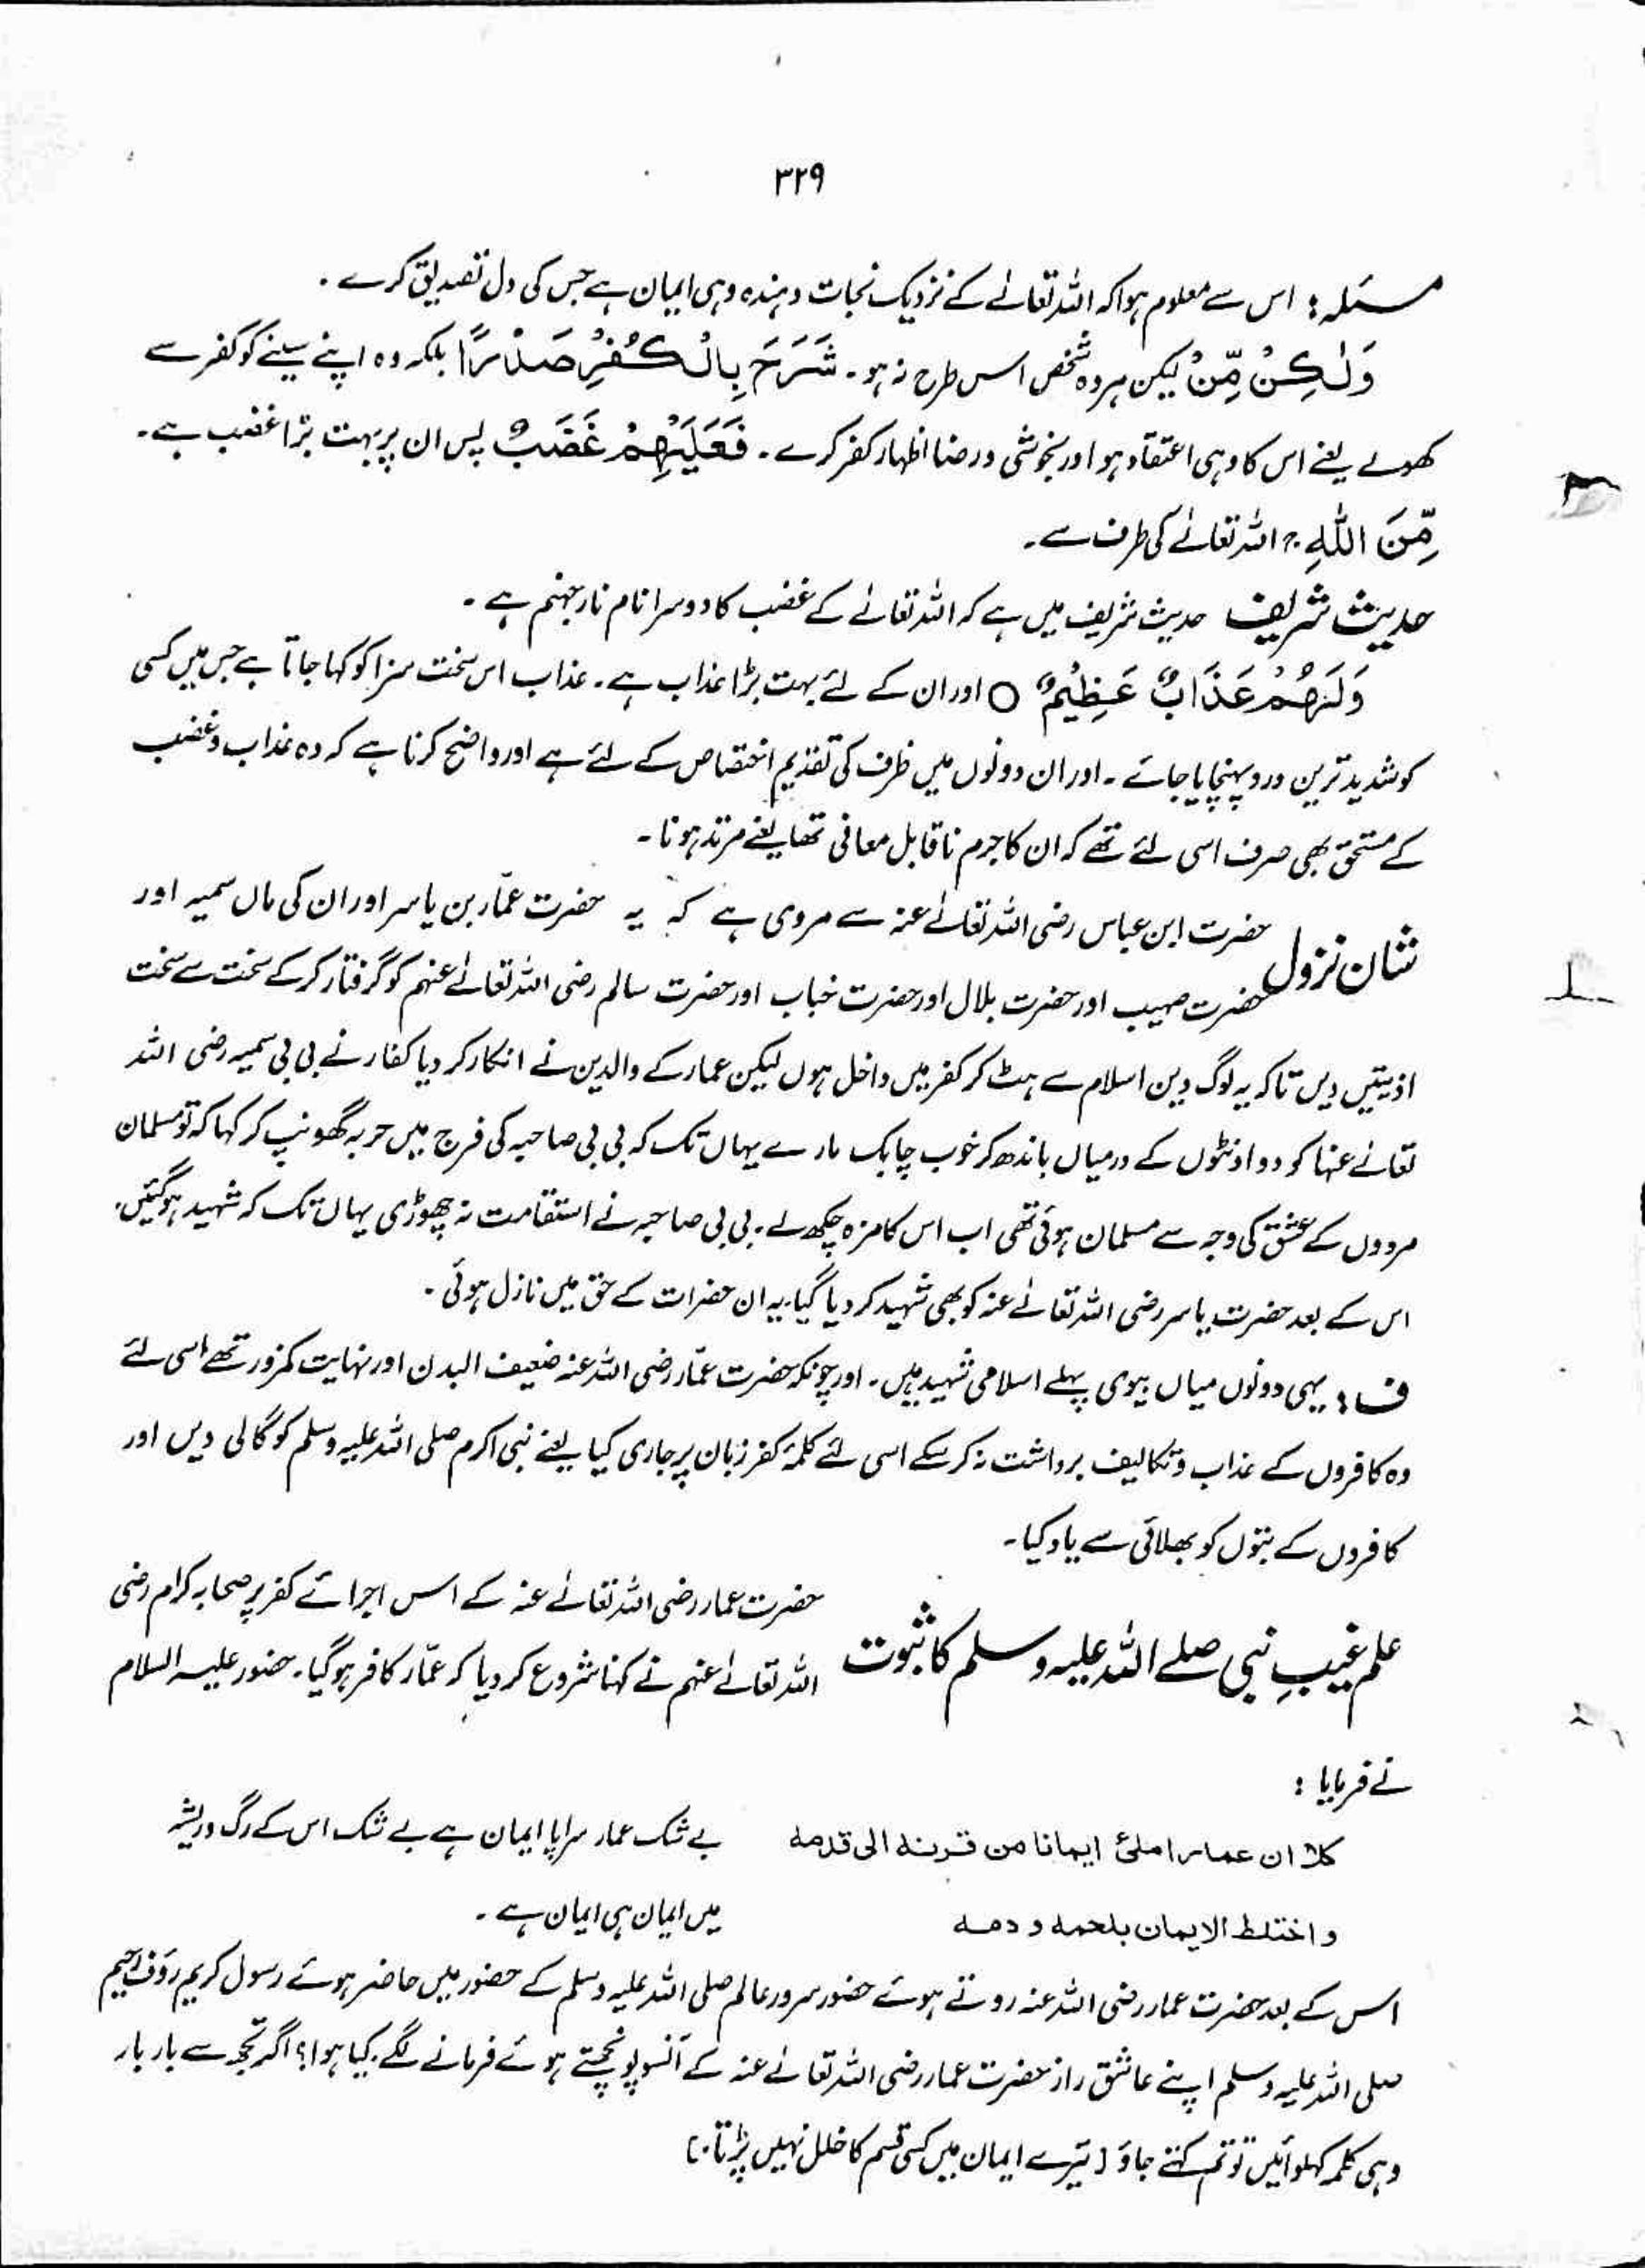 ۳۲۹
مسئلہ: اس سے معلوم ہوا کہ اللہ تعالےٰ کے نزدیک نجات دہندہ وہی ایمان ہے جس کی دل تصدیق کرے۔
وَلٰكِنْ مِّنْ لیکن ہر وہ شخص اس طرح نہ ہو۔ شَرَحَ بِالْكُفْرِ صَدْرًا بلکہ وہ اپنے سینے کو کفر سے
کھولے یعنے اس کا وہی اعتقاد ہو اور بخوشی و رضا اظہار کفر کرے۔ فَعَلَيْهِمْ غَضَبٌ پس ان پر بہت بڑا غضب ہے۔
مِّنَ اللّٰهِ ج اللہ تعالےٰ کی طرف سے۔
حدیث شریف حدیث شریف میں ہے کہ اللہ تعالےٰ کے غضب کا دوسرا نام نار جہنم ہے۔
وَلَهُمْ عَذَابٌ عَظِيْمٌ ○ اور ان کے لئے بہت بڑا عذاب ہے۔ عذاب اس سخت سزا کو کہا جاتا ہے جس میں کسی
کو شدید ترین درد پہنچایا جائے۔ اور ان دونوں میں ظرف کی تقدیم اختصاص کے لئے ہے اور واضح کرنا ہے کہ وہ عذاب و غضب
کے مستحق بھی صرف اسی لئے تھے کہ ان کا جرم ناقابل معافی تھا یعنے مرتد ہونا۔
شان نزول حضرت ابن عباس رضی اللہ تعالےٰ عنہ سے مروی ہے کہ یہ حضرت عمّار بن یاسر اور ان کی ماں سمیہ اور
حضرت صہیب اور حضرت بلال اور حضرت خباب اور حضرت سالم رضی اللہ تعالےٰ عنہم کو گرفتار کر کے سخت سے سخت
اذیتیں دیں تاکہ یہ لوگ دین اسلام سے ہٹ کر کفر میں داخل ہوں لیکن عمار کے والدین نے انکار کر دیا کفار نے بی بی سمیہ رضی اللہ
تعالےٰ عنہا کو دو اونٹوں کے درمیاں باندھ کر خوب چابک مارے یہاں تک کہ بی بی صاحبہ کی فرج میں حربہ گھونپ کر کہا کہ تو مسلمان
مردوں کے عشق کی وجہ سے مسلمان ہوئی تھی اب اس کا مزہ چکھ لے۔ بی بی صاحبہ نے استقامت نہ چھوڑی یہاں تک کہ شہید ہوگئیں۔
اس کے بعد حضرت یاسر رضی اللہ تعالےٰ عنہ کو بھی شہید کر دیا گیا۔ یہ ان حضرات کے حق میں نازل ہوئی۔
ف: یہی دونوں میاں بیوی پہلے اسلامی شہید ہیں۔ اور چونکہ حضرت عمّار رضی اللہ عنہ ضعیف البدن اور نہایت کمزور تھے اسی لئے
وہ کافروں کے عذاب و تکالیف برداشت نہ کر سکے اسی لئے کلمۂ کفر زبان پر جاری کیا یعنے نبی اکرم صلی اللہ علیہ وسلم کو گالی دیں اور
کافروں کے بتوں کو بھلائی سے یاد کیا۔
علم غیبِ نبی صلے اللہ علیہ وسلم کا ثبوت حضرت عمار رضی اللہ تعالےٰ عنہ کے اس اجرائے کفر پر صحابہ کرام رضی
اللہ تعالےٰ عنہم نے کہنا شروع کر دیا کہ عمّار کافر ہو گیا۔ حضور علیہ السلام
نے فرمایا:
کلا ان عمارا ملئ ایمانا من قرنہ الی قدمہ بے شک عمار سراپا ایمان ہے بے شک اس کے رگ و ریشہ
و اختلط الایمان بلحمہ و دمہ میں ایمان ہی ایمان ہے۔
اس کے بعد حضرت عمار رضی اللہ عنہ روتے ہوئے حضور سرور عالم صلی اللہ علیہ وسلم کے حضور میں حاضر ہوئے رسول کریم رؤف رحیم
صلی اللہ علیہ وسلم اپنے عاشق راز حضرت عمار رضی اللہ تعالےٰ عنہ کے آنسو پونچھتے ہوئے فرمانے لگے۔ کیا ہوا؟ اگر تجھ سے بار بار
وہی کلمہ کہلوائیں تو تم کہتے جاؤ [تیرے ایمان میں کسی قسم کا خلل نہیں پڑتا۔]